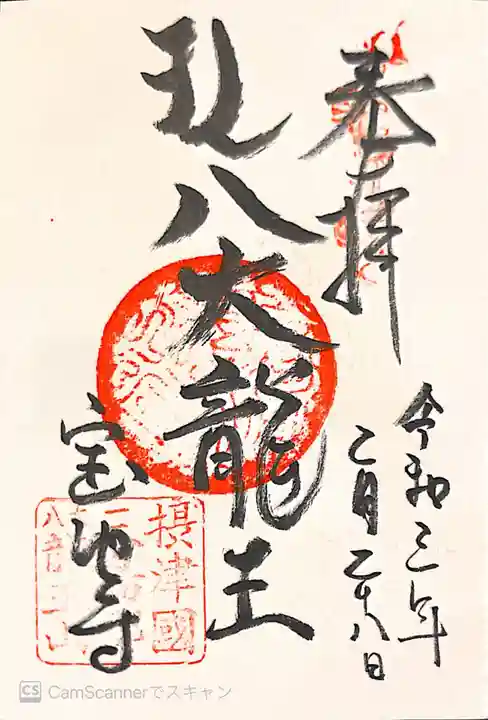 奉拝
令和三年
二月二十八日
八大龍王
宝池寺
摂津國
CS CamScannerでスキャン